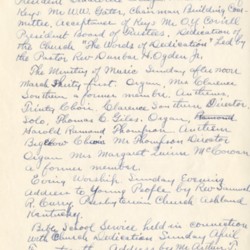 Keys Mr. W.W. Ester, Chairman Building Com-
mittee, Acceptance of Keys Mr. O.Y. Coriell
President Board of Trustees, Dedication of
the Church "The Words of Dedication" Led by
the Pastor Rev. Dunbar H. Ogden, Jr.
The Ministry of Music Sunday afternoon
March Thirty first, Organ, Mrs Clarence
a former member, Anthem,
Trinity Choir Clarence Director
Solo, Thomas C. Giles, Organ,
Harold Ramond Thompson, Anthem
Bigelow Choir Mr Thompson Director
Organ Mrs Margaret
a former member.
Evening Worship, Sunday Evening
Address to Young People, by Rev. Samuel
R. Curry, Presbyterian Church Ashland
Kentucky.
Bible School Service held in connection
with Church Dedication, Sunday April
Address by Mr. Arthur